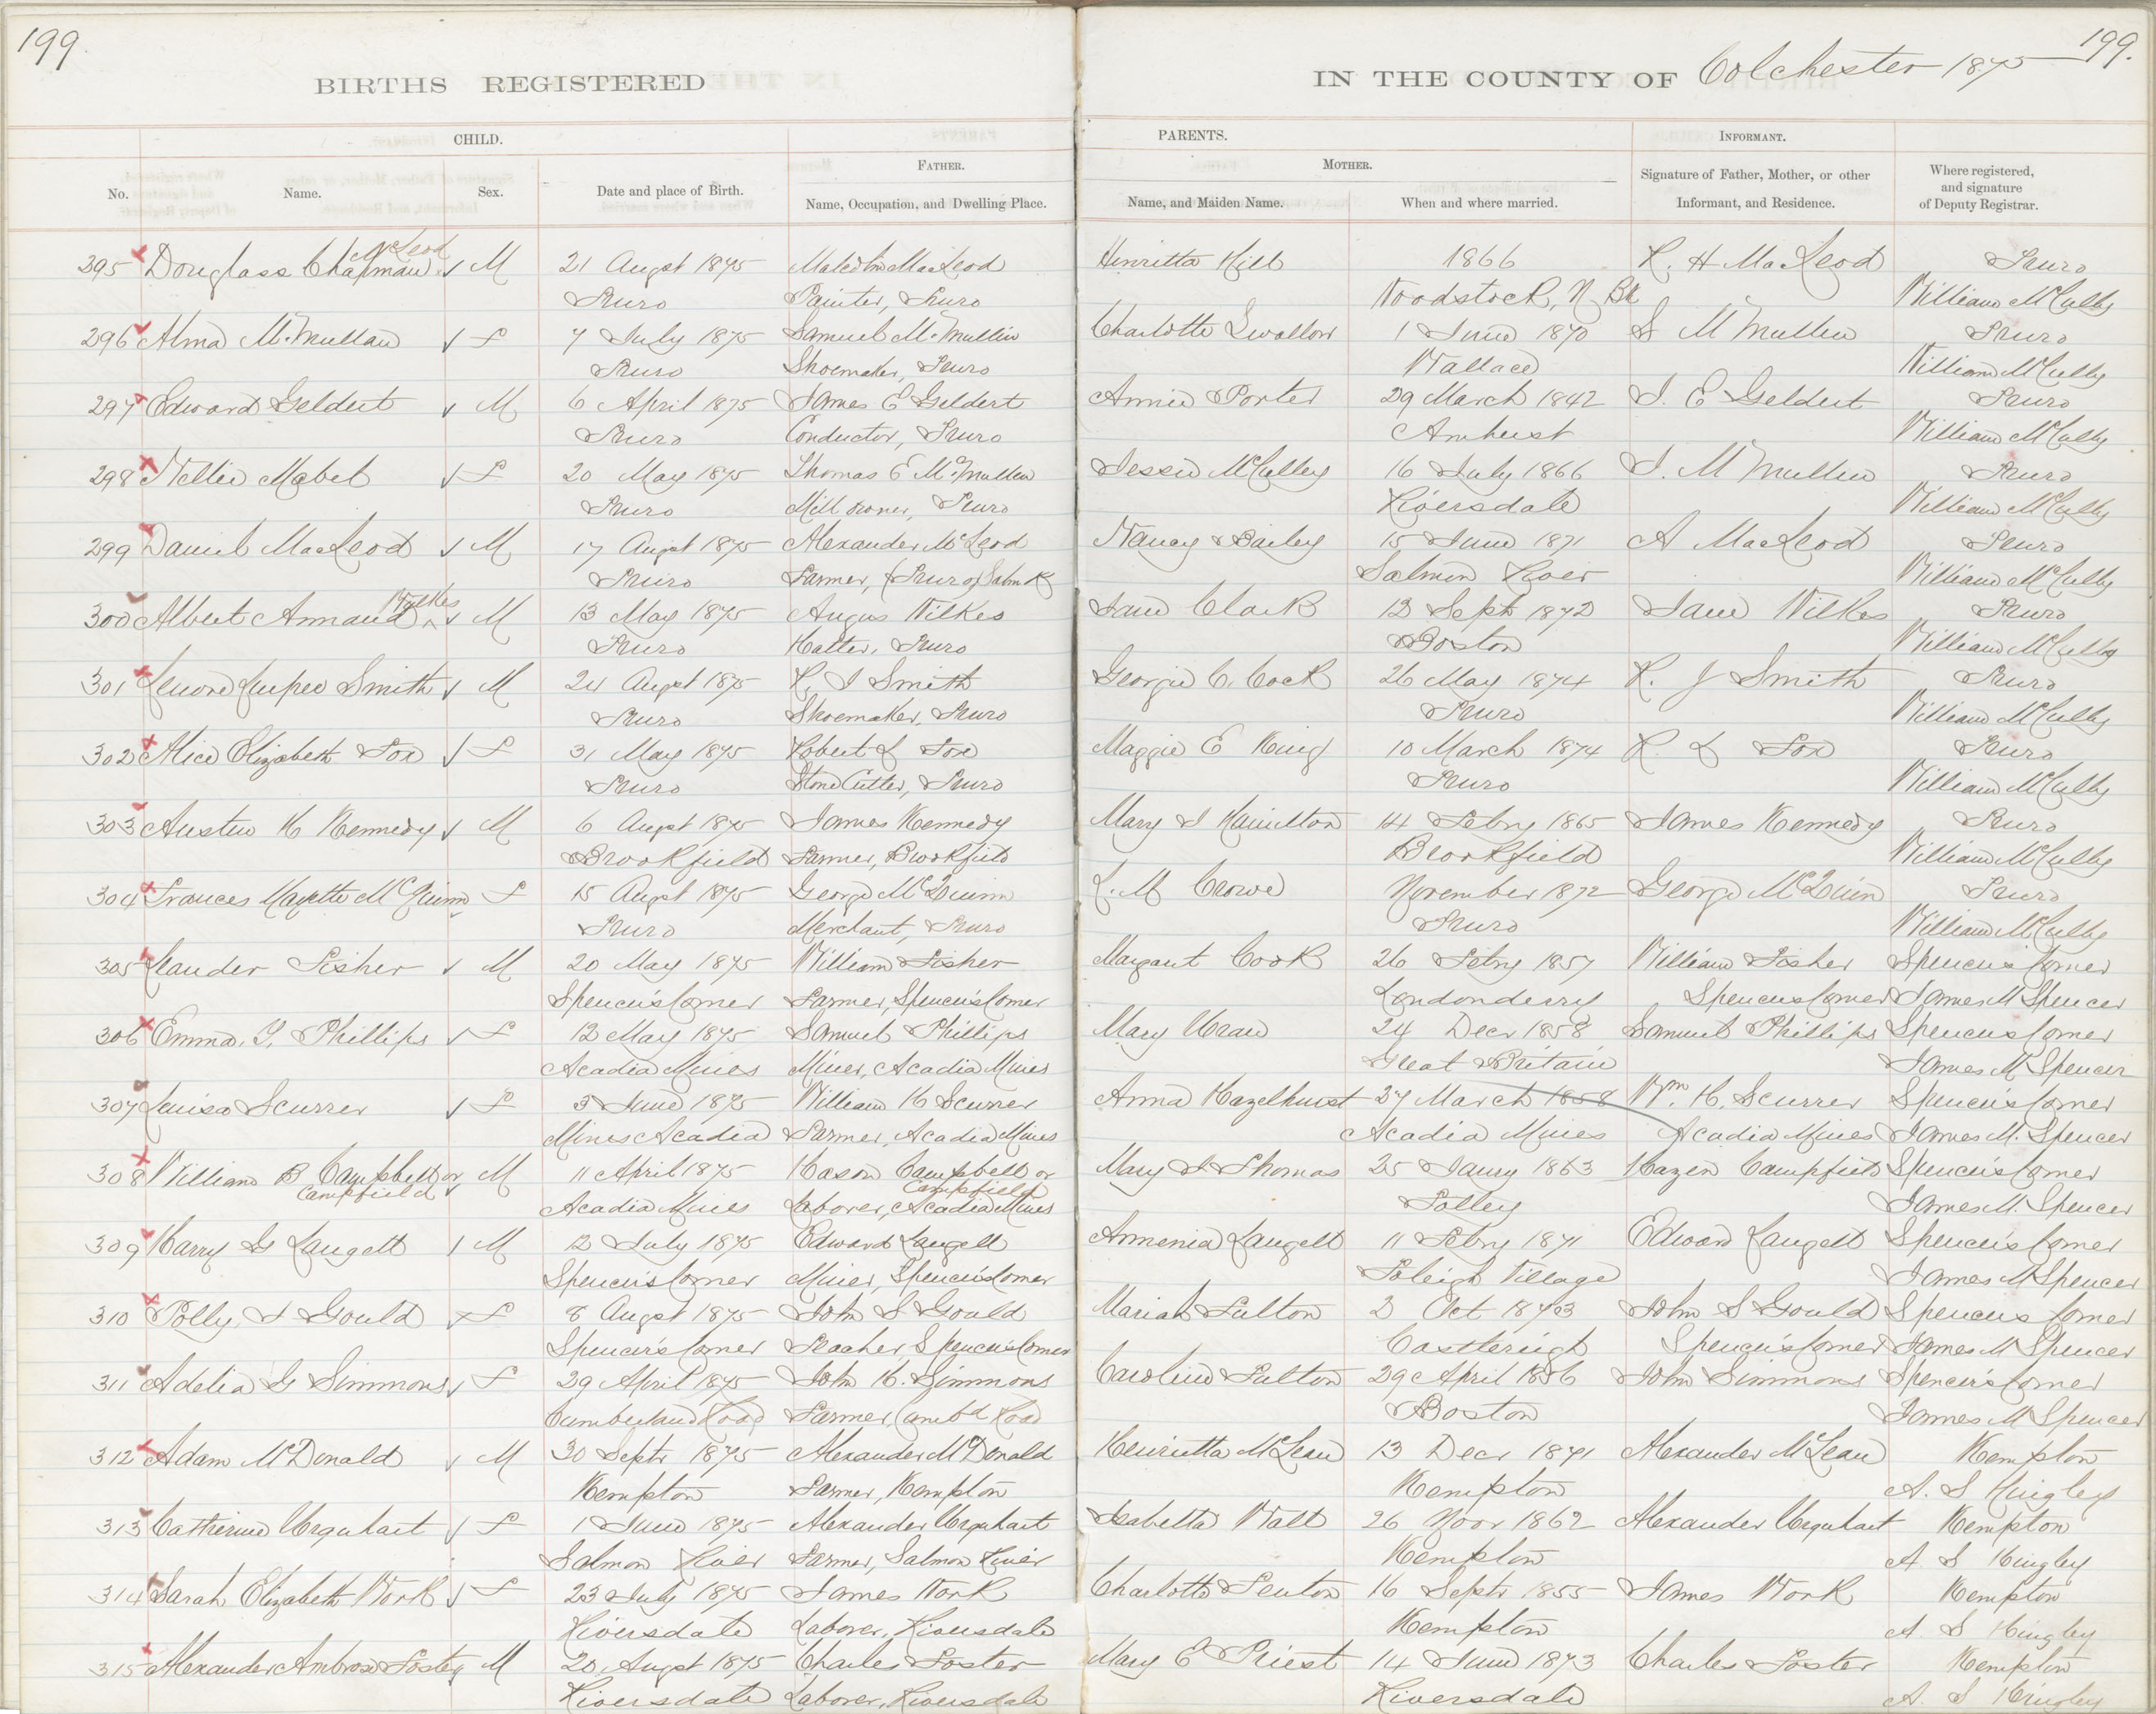 199.
199.
BIRTHS REGISTERED
IN THE COUNTY OF Colchester 1875
CHILD.
PARENTS.
INFORMANT.
FATHER.
MOTHER.
No.
Name.
Sex.
Date and place of Birth.
Name, Occupation, and Dwelling Place.
Name, and Maiden Name.
When and where married.
Signature of Father, Mother, or other Informant, and Residence.
Where registered, and signature of Deputy Registrar.
McLeod
295 Douglass Chapman M 21 Augst 1875 Malcolm MacLeod Henrietta Hill 1866 R. H MacLeod Truro
Truro Painter, Truro Woodstock, N Bk William McCully
296 Alma McMullan F 7 July 1875 Samuel McMullin Charlotte Swallow 1 June 1870 S McMullen Truro
Truro Shoemaker, Truro Wallace William McCully
297 Edward Geldert M 6 April 1875 James E Geldert Annie Porter 29 March 1842 J. E Geldert Truro
Truro Conductor, Truro Amherst William McCully
298 Nellie Mabel F 20 May 1875 Thomas G McMullen Jessie McCulley 16 July 1866 T. McMullen Truro
Truro Mill owner, Truro Riversdale William McCully
299 Daniel MacLeod M 17 Augst 1875 Alexander McLeod Nancy Bailey 15 June 1871 A MacLeod Truro
Truro Farmer, (Truro) Salm R Salmon River William McCully
Wilkes
300 Albert Armand M 13 May 1875 Angus Wilkes Jane Clark 12 Sept 1872 Jane Wilkes Truro
Truro Hatter, Truro Boston William McCully
301 Lenore Smith M 24 Augst 1875 R. J Smith Georgie C. Cock 26 May 1874 R. J Smith Truro
Truro Shoemaker, Truro Truro William McCully
302 Alice Elizabeth Fox F 31 May 1875 Robert L Fox Maggie E King 10 March 1874 R. L Fox Truro
Truro Stone Cutter, Truro Truro William McCully
303 Austin H Kennedy M 6 Augst 1875 James Kennedy Mary J Hamilton 14 Febry 1865 James Kennedy Truro
Brookfield Farmer, Brookfield Brookfield William McCully
304 Frances Mayette McQuinn F 15 Augst 1875 George McQuinn L. M Crowe November 1872 George McQuinn Truro
Truro Merchant, Truro Truro William McCully
305 Leander Fisher M 20 May 1875 William Fisher Margaret Cook 26 Febry 1857 William Fisher Spencer's Corner
Spencer's Corner Farmer, Spencer's Corner Londonderry Spencer's Corner James M Spencer
306 Emma. J. Phillips F 12 May 1875 Samuel Phillips Mary Uran 24 Decr 1858 Samuel Phillips Spencer's Corner
Acadia Mines Miner, Acadia Mines Great Britain James M Spencer
307 Louisa Scurrer F 3 June 1875 William H Scurrer Anna Hazelhurst 27 March 1858 Wm. H. Scurrer Spencer's Corner
Mines Acadia Farmer, Acadia Mines Acadia Mines Acadia Mines James M. Spencer
308 William B Campbell or M 11 April 1875 Hason Campbell or Mary J Thomas 25 Janry 1863 Hazen Campfield Spencer's Corner
Campfield Campfield
Acadia Mines Laborer, Acadia Mines Folley James M. Spencer
309 Harry G Langell M 12 July 1875 Edward Langell Armenia Langell 11 Febry 1871 Edward Langell Spencer's Corner
Spencer's Corner Miner, Spencer's Corner Foleigh Village James M Spencer
310 Polly. J Gould F 8 Augst 1875 John S Gould Mariah Fulton 2 Oct 1873 John S Gould Spencer's Corner
Spencer's Corner Teacher Spencer's Corner Castlereigh Spencer's Corner James M Spencer
311 Adelia G Simmons F 29 April 1875 John H. Simmons Caroline Fulton 29 April 1856 John Simmons Spencer's Corner
Cumberland Road Farmer, Cumbd Road Boston James M Spencer
312 Adam McDonald M 30 Septr 1875 Alexander McDonald Henrietta McLean 13 Decr 1871 Alexander McLean Kempton
Kempton Farmer, Kempton Kempton A. S Kingley
313 Catherine Urquhart F 1 June 1875 Alexander Urquhart Isabella Watt 26 Novr 1862 Alexander Urquhart Kempton
Salmon River Farmer, Salmon River Kempton A S Kingley
314 Sarah Elizabeth Work F 23 July 1875 James Work Charlotte Fenton 16 Septr 1855 James Work Kempton
Riversdale Laborer, Riversdale Kempton A S Kingley
315 Alexander Ambrose Foster M 20 Augst 1875 Charles Foster Mary E Priest 14 June 1873 Charles Foster Kempton
Riversdale Laborer, Riversdale Riversdale A. S Kingley